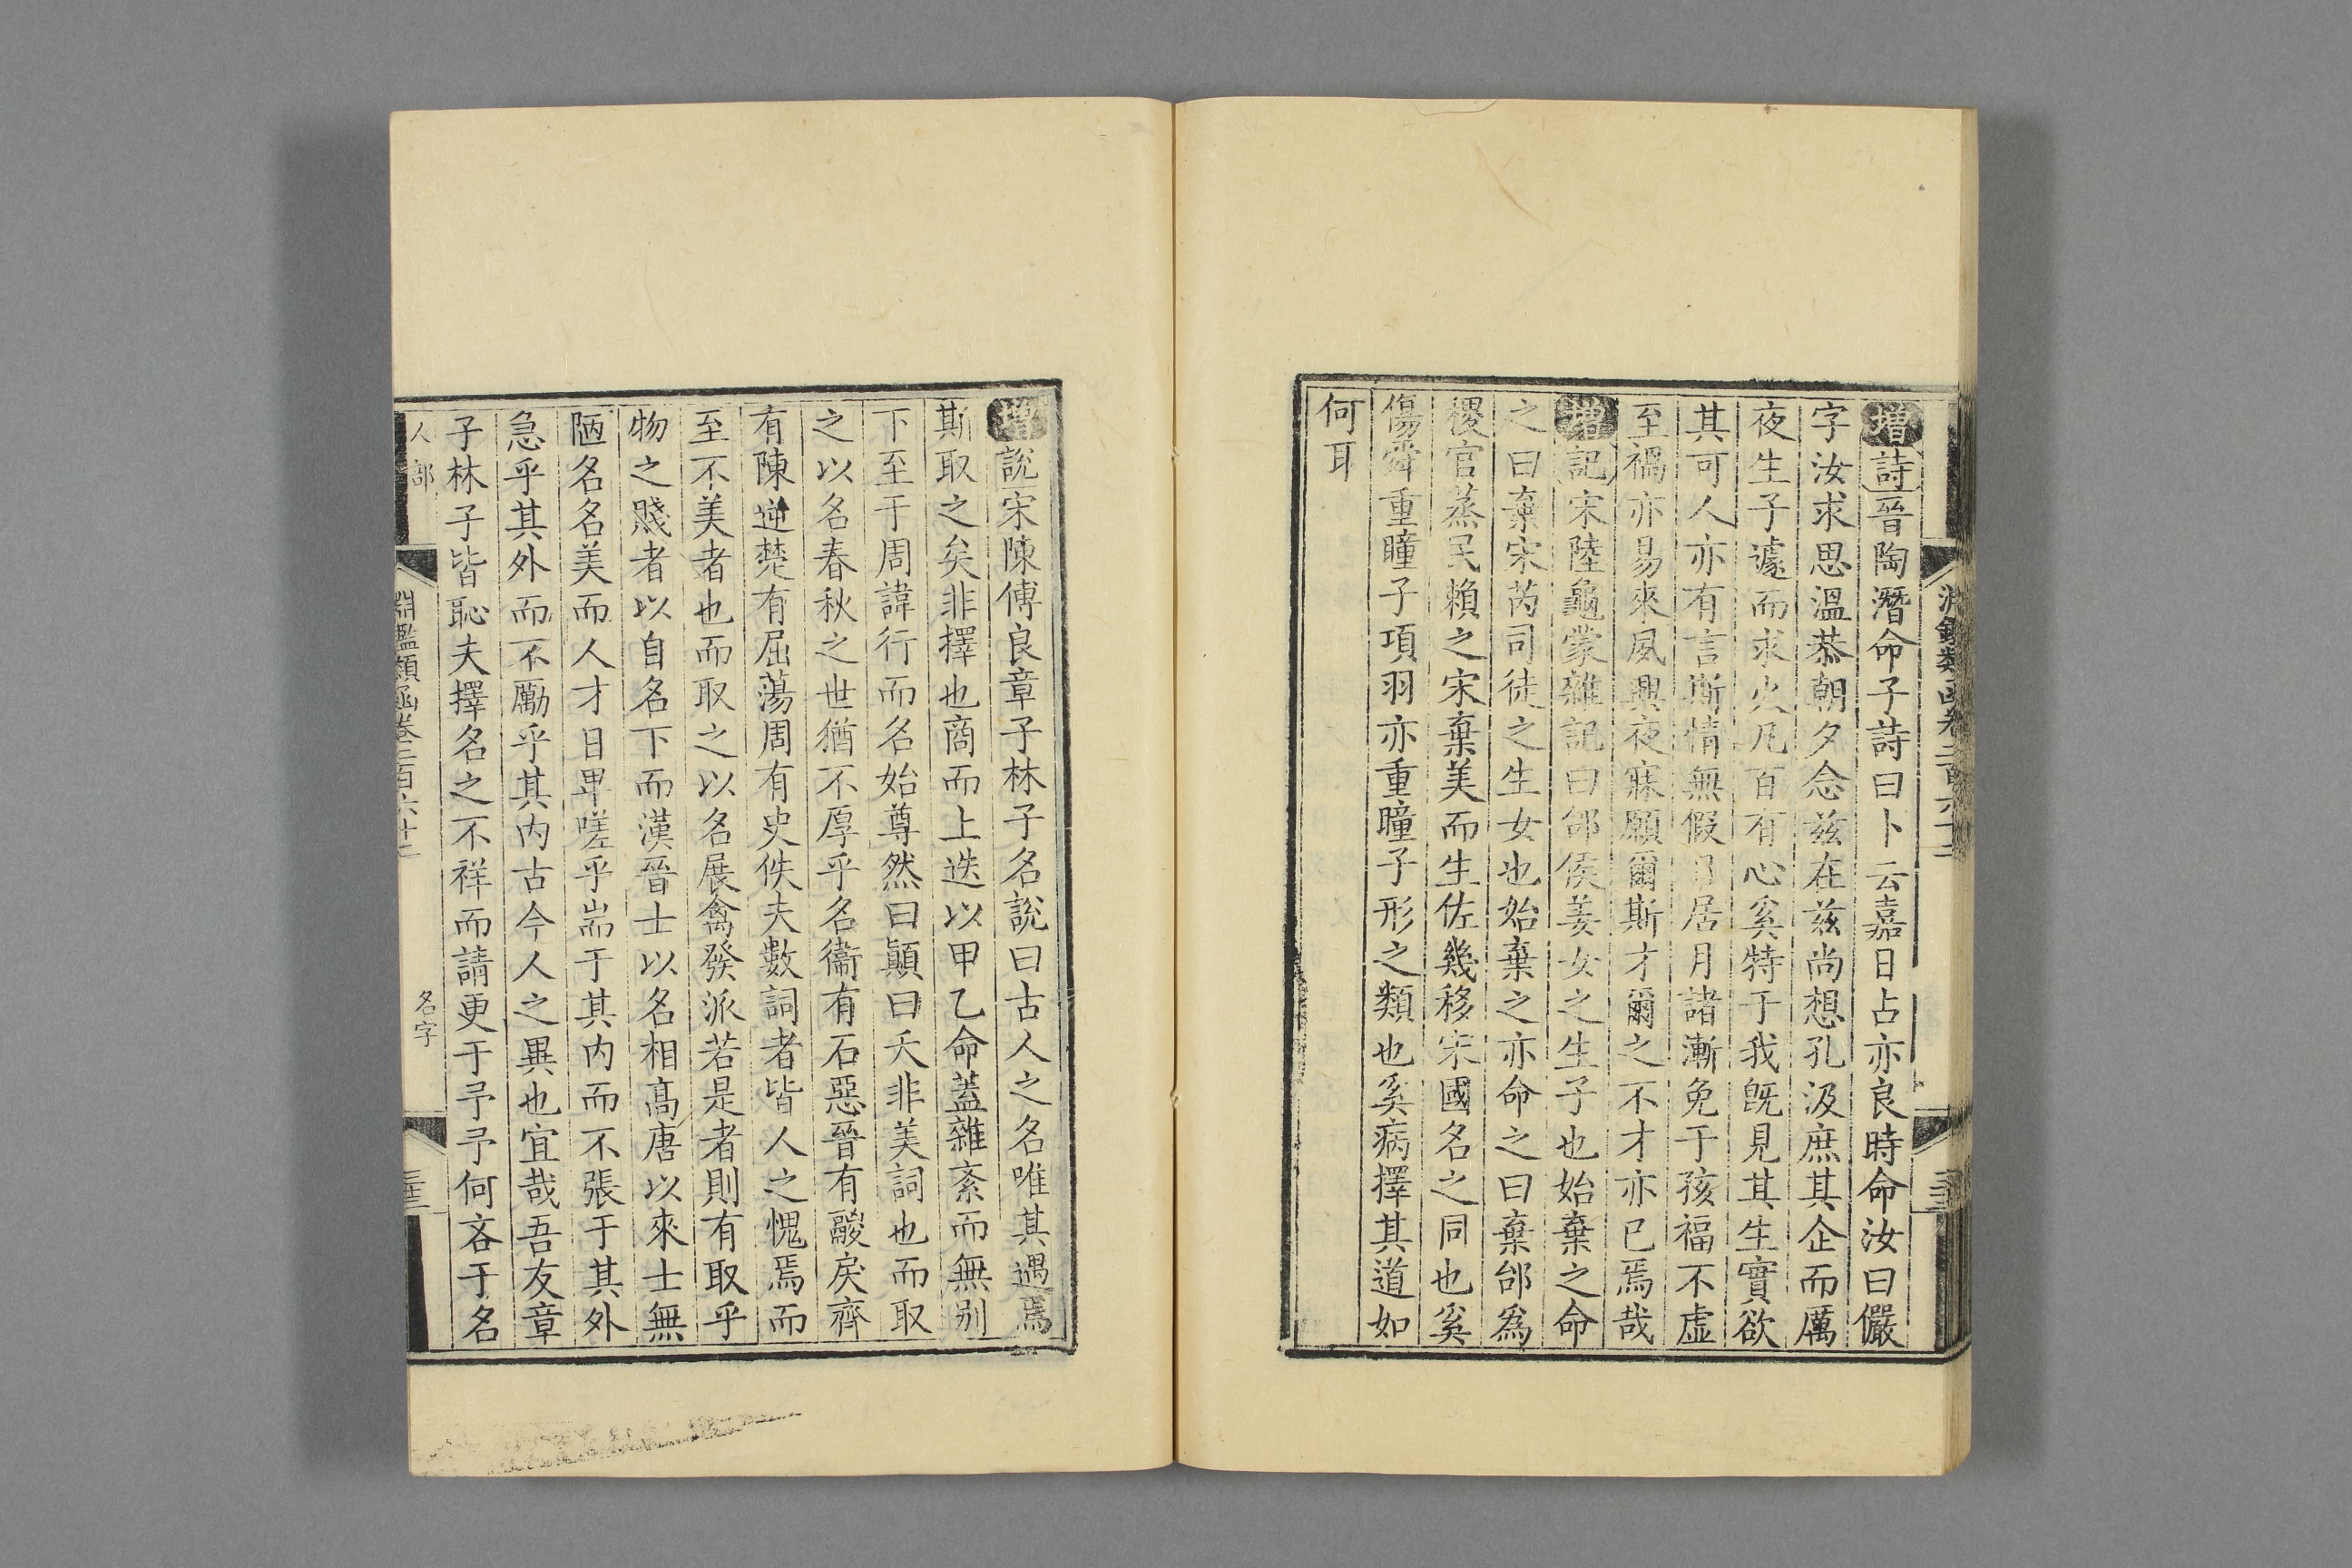 增詩晉陶潛命子詩曰卜云嘉日占亦良時命汝曰儼
字汝求思溫恭朝夕念兹在兹尚想孔汲庶其企而厲
夜生子遽而求火凡百有心奚特于我旣見其生實欲
其可人亦有言斯情無假日居月諸漸免于孩福不虚
至禍亦易來夙興夜寐願爾斯才爾之不才亦已焉哉
增記宋陸龜蒙雜記曰郃侯姜女之生子也始棄之命
之曰棄宋芮司徒之生女也始棄之亦命之曰棄邰爲
稷官蒸民賴之宋棄美而生佐幾移宋國名之同也奚
傷舜重瞳子項羽亦重瞳子形之類也奚病擇其道如
何耳
增說宋陳傅良章子林子名說曰古人之名唯其遇焉
斯取之矣非擇也商而上迭以甲乙命蓋雜紊而無别
下至于周諱行而名始尊然曰顚曰夭非美詞也而取
之以名春秋之世猶不厚乎名衞有石惡晉有酸戾齊
有陳逆楚有屈蕩周有史佚夫數詞者皆人之愧焉而
至不美者也而取之以名展禽發派若是者則有取乎
物之賤者以自名下而漢晉士以名相高唐以來士無
陋名名美而人才日卑嗟乎耑于其内而不張于其外
急乎其外而不勵乎其内古今人之異也宜哉吾友章
子林子皆恥夫擇名之不祥而請更于予予何吝于名
人部
淵鑑類函卷二百六十二
名字